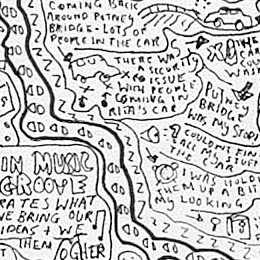 COMING BACK
AROUND PUTNEY
BRIDGE - LOTS OF
PEOPLE IN THE CAR
THERE WAS
A SECURITY
ISSUE
WITH PEOPLE
COMING IN
RITA'S CAR
THE
CAR
COULD
WAS
PUTNEY
BRIDGE
WAS MY STOP
COULDN'T FIN
ALL MY STUFF
THE CAR
I WAS HOLD
THEM UP A BIT
MY LOOKING
IN MUSIC
GROOVE
RATES WHAT
WE BRING OUR
IDEAS + WE
THEM